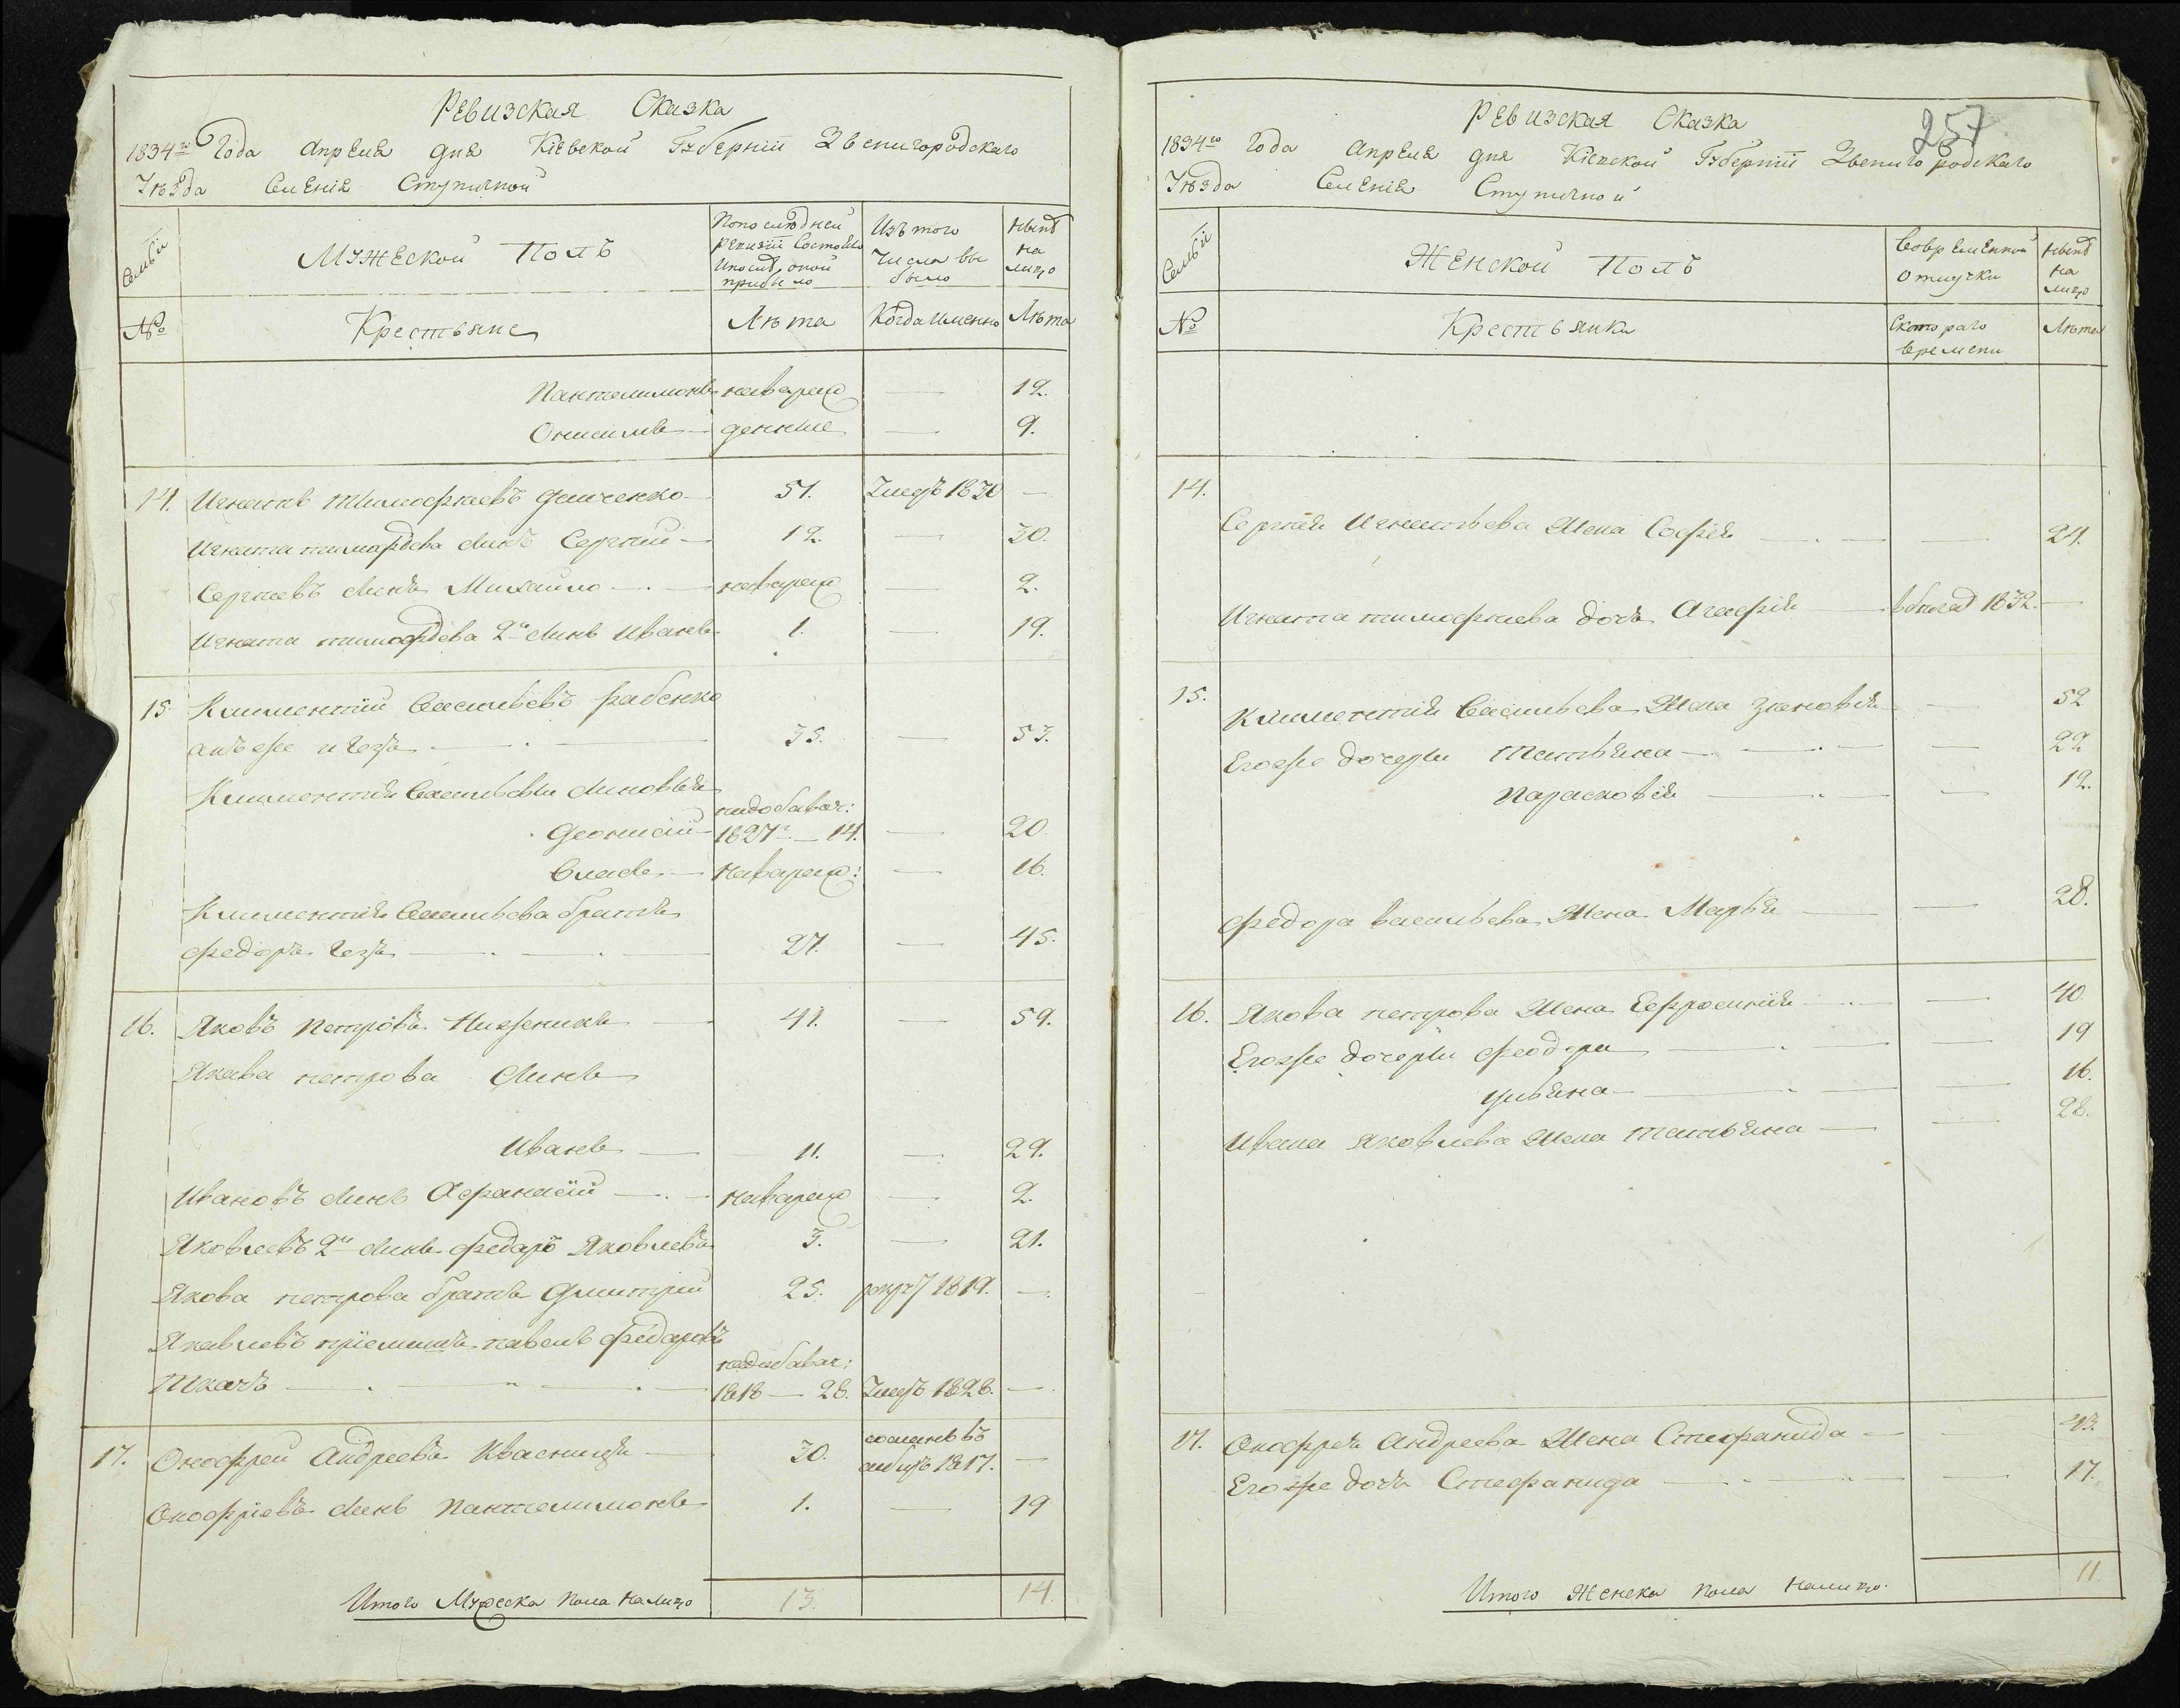 Ревизская Сказка
1834го Года Апреля дня Кіевской Губерніи Звенигородскаго
Уѣзда Селенія Ступичной
Семьи
Мужеской Полъ
По последней ревизіи Состояло и послѣ оной прибыло
Изъ того Числа выбыло
Нынѣ на лицо
№
Крестьяне
Лѣта
Когда именно
Лѣта
Пантелимонъ новорож — 12.
Онисимъ — денные — 9.
14. Игнатъ Тимофѣевъ — 51. Умеръ 1830 —
Игната тимофѣева Сынъ Сергѣй — 12. — 30.
Сергѣевъ Сынъ Михайло — новорож — 2.
Игната тимофѣева 2й Сынъ Иванъ 1. — 19.
15 Климентій Васильевъ рабенко
онъ же и Чежъ — 35. — 53.
Климентія Васильевы Сыновья
Деонисій — 1827г. — 14. — 20
Власъ — новорож: — 16.
Климентія Васильева братъ
Федоръ Чежъ — 27. — 45.
16. Яковъ Петровъ — 41. — 59.
Якова петрова Сынъ
Иванъ — 11. — 29.
Ивановъ Сынъ Афанасій — новорож — 2.
Яковлевъ 2й Сынъ Федоръ Яковлевъ 3. — 21.
Якова петрова братъ Дмитрій 25. рекру 1819. —
Яковлевъ пріемышъ павелъ федоровъ
Ткачъ — 1818 — 28. Умеръ 1828. —
17. Онофрей Андреевъ Квасницкій — 30. 1817. —
Онофріевъ Сынъ Пантелимонъ 1. — 19
Итого Мужеска пола на лицо 13. 14.
257
Ревизская Сказка
1834го Года Апреля дня Кіевской Губерніи Звенигородскаго
Уѣзда Селенія Ступичной
Семьи
Женской Полъ
Во временной отлучки
Нынѣ на лицо
№
Крестьянки
С котораго времени
Лѣта
14.
Сергѣя Игнатьева Жена Софія — 24.
Игната тимофѣева дочь Агафія — 1832. —
15. Климентія Васильева Жена Зѣновія — 52
Егоже дочери Татьяна — 22
Парасковія — 12.
Федора васильева Жена Марья — 28.
16. Якова петрова Жена Ефросинія — 40
Егоже дочери Феодора — 19
ульяна — 16.
Ивана Яковлева Жена Татьяна — 28.
17. Онофрея Андреева Жена Стефанида — 43.
Егоже дочь Стефанида — 17.
Итого Женска пола Налицо. 11.